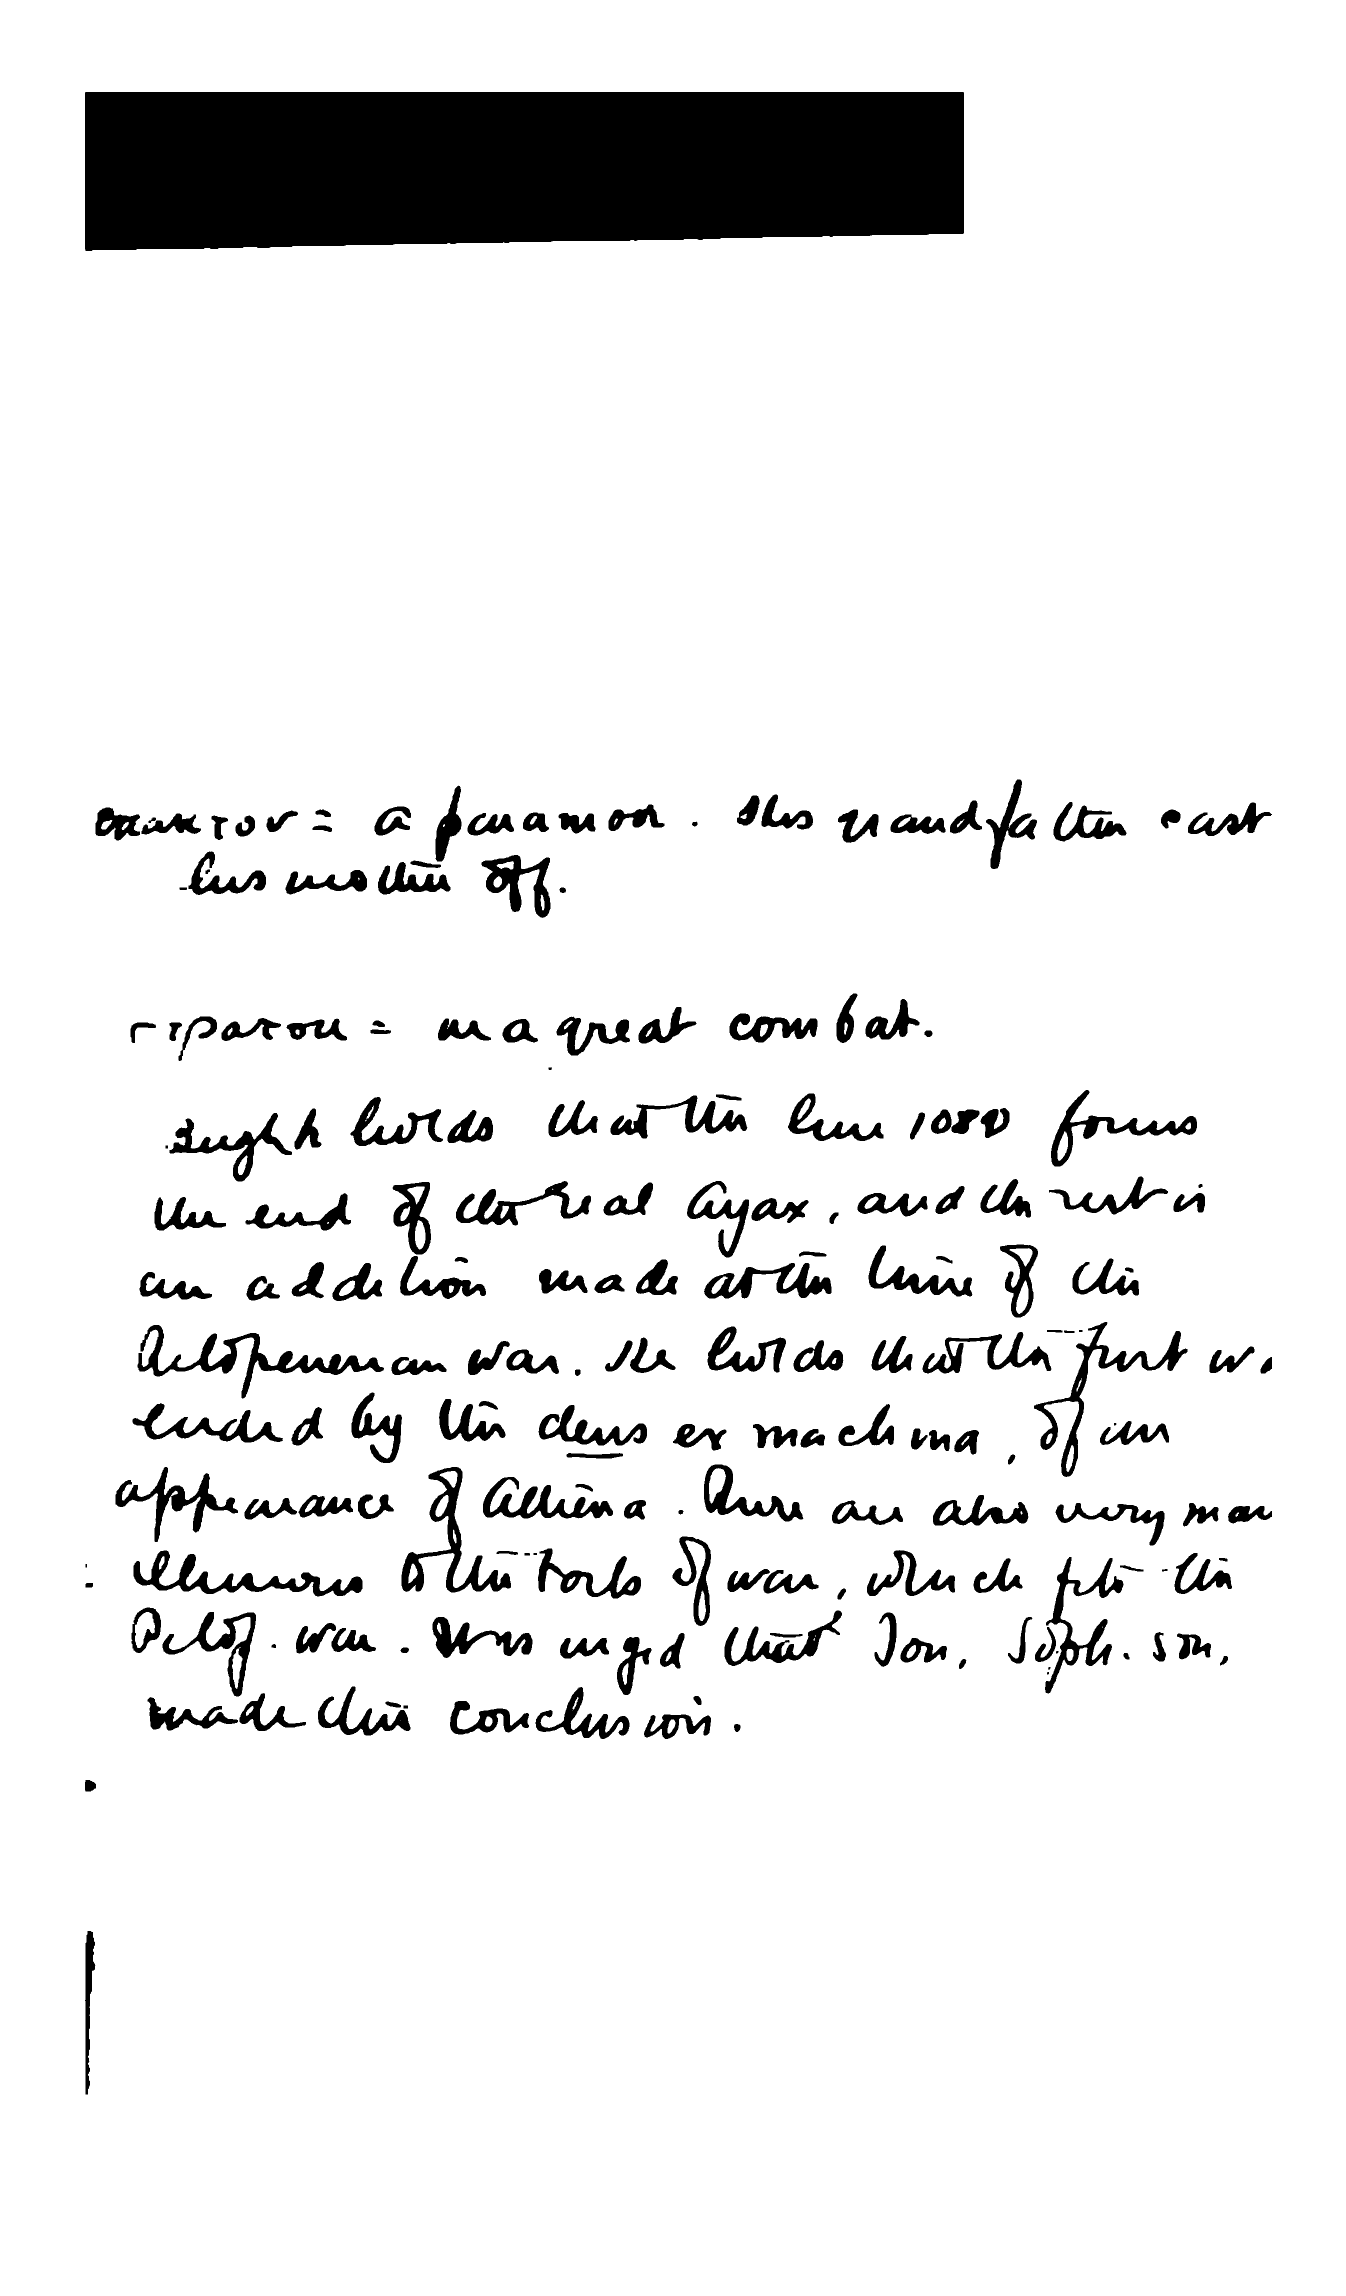 επακτον = a paramour. His grandfather cast
his mother off.
στρατου = in a great combat.
holds that the line 1080 forms
the end of the real Ajax, and the rest is
an addition made at the time of the
Pelopenesian war. He holds that the first w
ended by the deus ex machina, of an
appearance of Athena. There are also very man
allusions to the toils of war, which fits the
Pelop. war. It is urged that Ion, Soph. son,
made this conclusion.